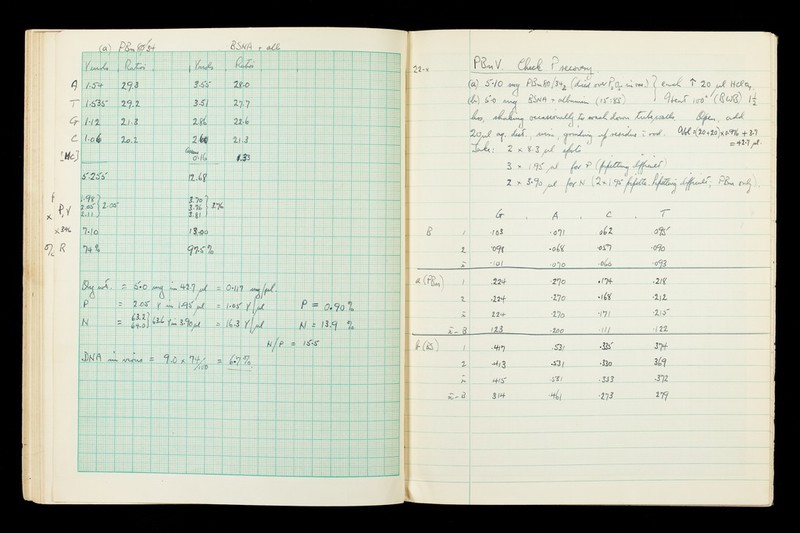 (a) PBm 80/34
BSNA + alb
γmols Ratios γmols Ratios
A 1.54 29.3 3.55 28.0
T 1.535 29.2 3.51 27.7
G 1.12 21.3 2.86 22.6
C 1.06 20.2 2.60 21.3
[MC] 0.16 1.33
5.255 12.68
1.98 3.70
2.05 2.05 3.76 3.76
2.11 3.81
P, γ
7.10 13.00
% R 74% 97.5%
Dry wt. = 5.0 mg in 42.7 μl = 0.117 mg/μl.
P = 2.05 γ in 1.95 μl = 1.05 γ/μl P = 0.90%
N = 63.2 64.0 63.6 γ in 3.90 μl = 16.3 γ/μl N = 13.9 %
N/P = 15.5
DNA in virus = 9.0 x 74/100 = 6.7%.
22-x
PBmV. Check P recovery
(a) 5.10 mg PBm80/34 (dried over P2O5 in vac) each ↑ 20 μl HClO4
(b) 5.0 mg BSNA + albumin (15:185) 100° 1½
hrs, shaking occasionally to wash down tube walls. Open, add
20 μl aq. dist., mix, grinding up residue with rod. Vol = (20+20) x 0.96 + 3.7
= 42.7 μl.
Take: 2 x 8.3 μl spots
3 x 1.95 μl for P (pipetting difficult)
2 x 3.90 μl for N (2 x 1.95 pipette. Pipetting difficult; PBm only).
G A C T
B 1 .103 .071 .062 .095
2 .098 .068 .057 .090
.101 .070 .060 .093
a (PBm) 1 .224 .270 .174 .218
2 .224 .270 .168 .212
.224 .270 .171 .215
- B .123 .200 .111 .122
b (BS) 1 .417 .531 .335 .374
2 .413 .531 .330 .369
.415 .531 .333 .372
- B .314 .461 .273 .279